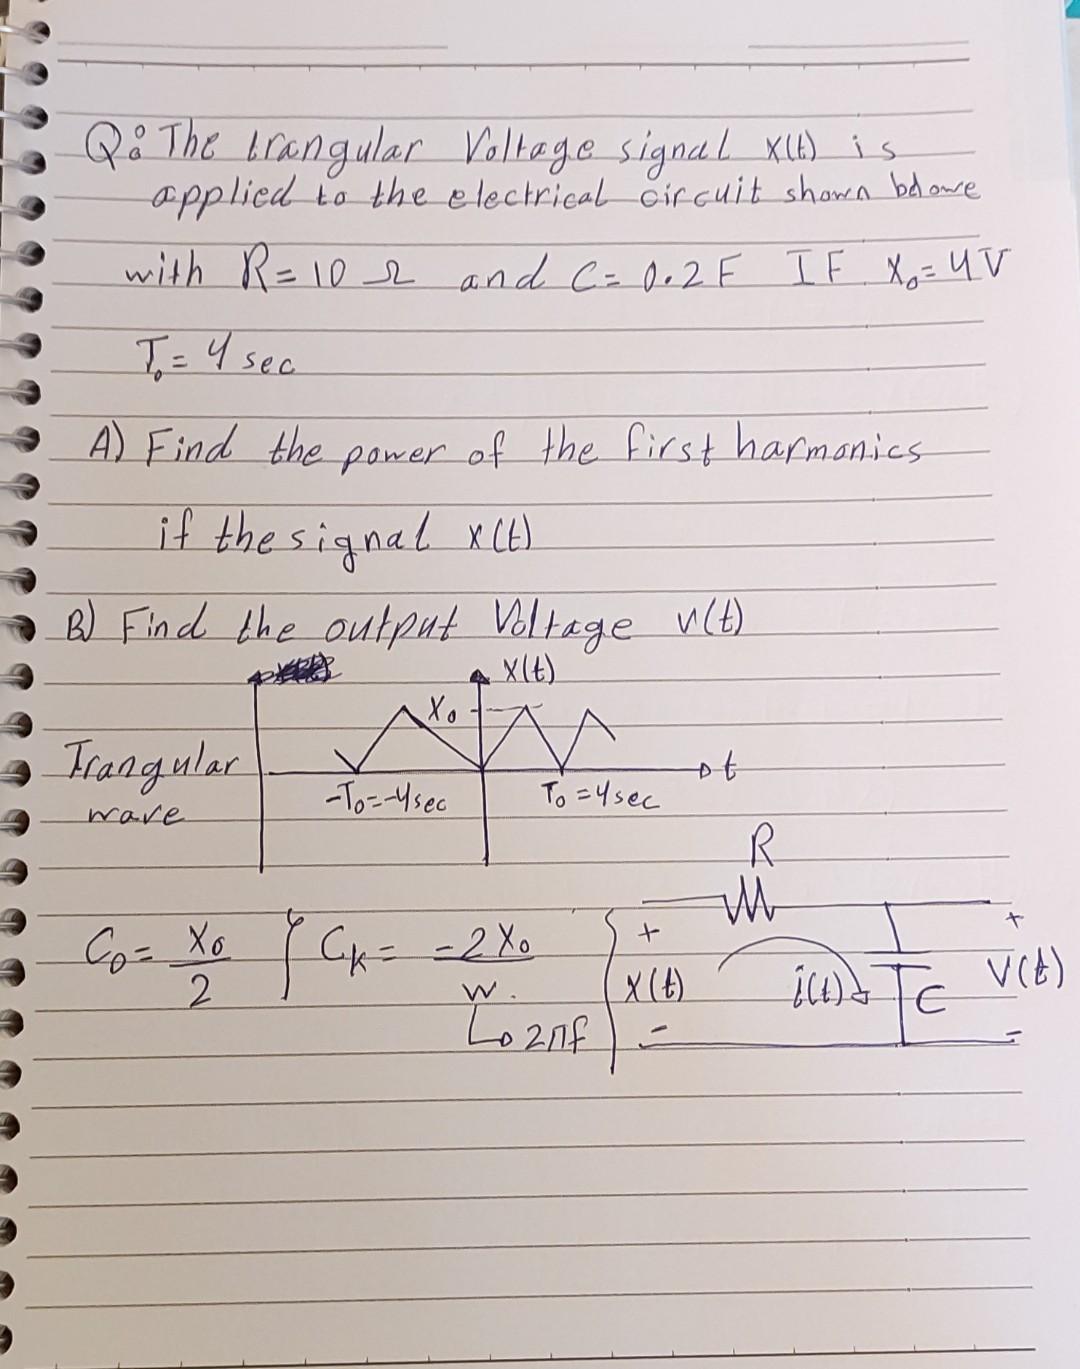 Q: The trangular Voltage signal x(t) is
applied to the electrical circuit shown belowe
with R = 10 Ω and C = 0.2 F IF X₀ = 4V
T₀ = 4 sec
A) Find the power of the first harmonics
if the signal x(t)
B) Find the output Voltage v(t)
x(t)
X₀
t
Trangular
wave
-T₀=-4sec
T₀ = 4sec
R
C₀ = X₀/2
Cₖ = -2X₀/w.
2πf
+
x(t)
-
i(t)
C
+
V(t)
-